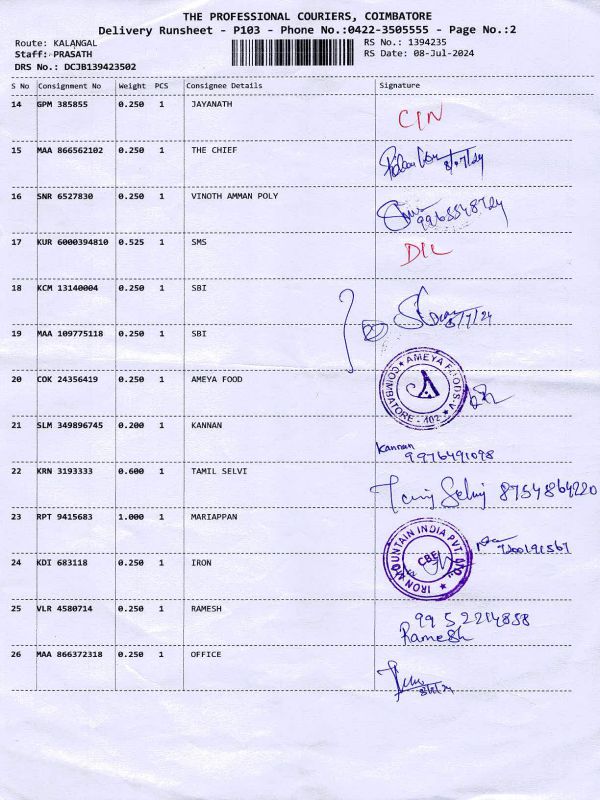 THE PROFESSIONAL COURIERS, COIMBATORE
Delivery Runsheet - P103 - Phone No.:0422-3505555 - Page No.:2
Route: KALANGAL RS No.: 1394235
Staff: PRASATH RS Date: 08-Jul-2024
DRS No.: DCJB139423502
S No Consignment No Weight PCS Consignee Details Signature
14 GPM 385855 0.250 1 JAYANATH
CIN
15 MAA 866562102 0.250 1 THE CHIEF
8/07/24
16 SNR 6527830 0.250 1 VINOTH AMMAN POLY
9965548724
17 KUR 6000394810 0.525 1 SMS
DIL
18 KCM 13140004 0.250 1 SBI
8/7/24
19 MAA 109775118 0.250 1 SBI
20 COK 24356419 0.250 1 AMEYA FOOD
AMEYA FOODS
COIMBATORE - 402
21 SLM 349896745 0.200 1 KANNAN
Kannan
9976491098
22 KRN 3193333 0.600 1 TAMIL SELVI
Selvi 8754864220
23 RPT 9415683 1.000 1 MARIAPPAN
7200191567
24 KDI 683118 0.250 1 IRON
IRON MOUNTAIN INDIA PVT. LTD.
CBE
25 VLR 4580714 0.250 1 RAMESH
9952214858
Ramesh
26 MAA 866372318 0.250 1 OFFICE